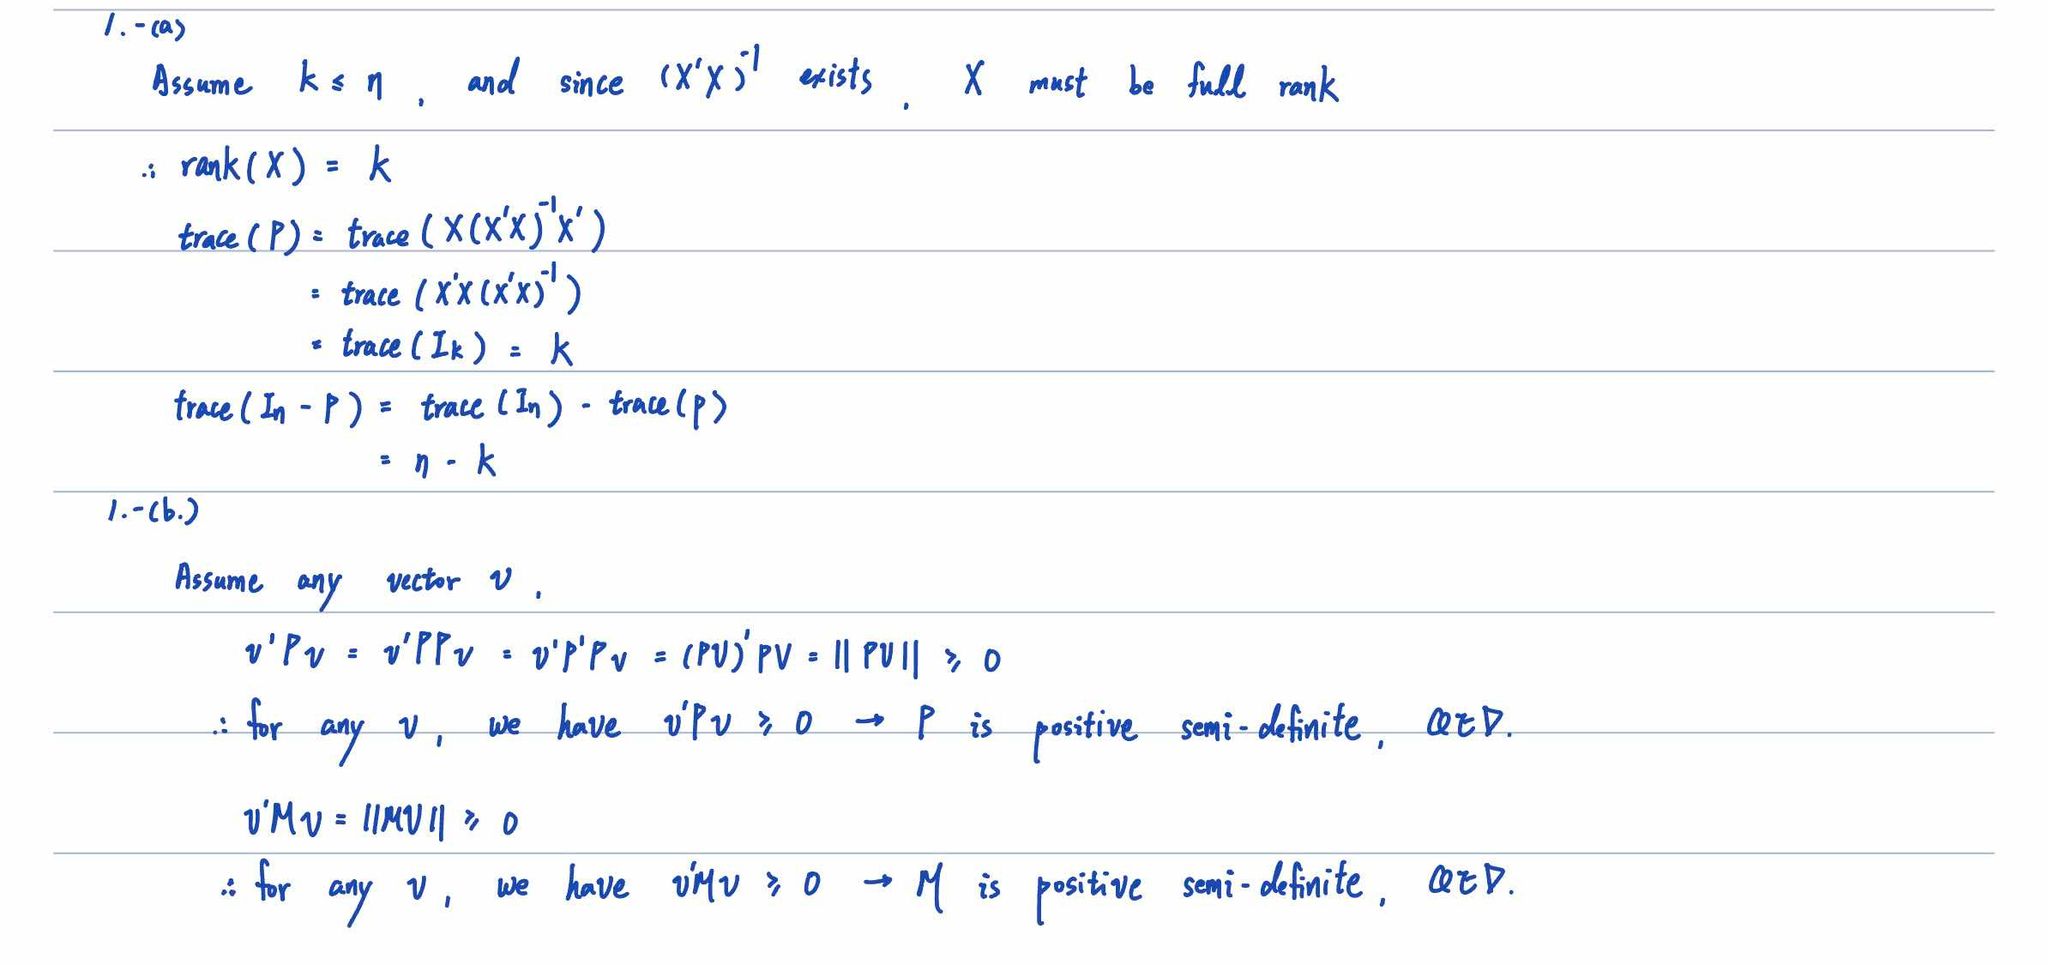 1.-(a)
Assume k ≤ n , and since (X'X)⁻¹ exists , X must be full rank
∴ rank(X) = k
trace(P) = trace(X(X'X)⁻¹X')
= trace(X'X(X'X)⁻¹)
= trace(Ik) = k
trace(In - P) = trace(In) - trace(P)
= n - k
1.-(b.)
Assume any vector v ,
v'Pv = v'PPv = v'P'Pv = (PV)'PV = ||PV|| ≥ 0
∴ for any v, we have v'Pv ≥ 0 → P is positive semi-definite, QED.
v'Mv = ||MV|| ≥ 0
∴ for any v, we have v'Mv ≥ 0 → M is positive semi-definite, QED.